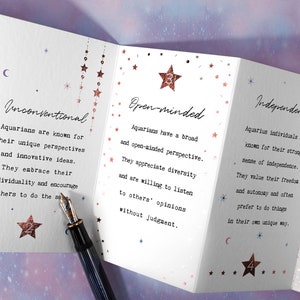 Unconventional
Aquarians are known for
their unique perspectives
and innovative ideas.
They embrace their
dividuality and encourage
thers to do the sam
Open-minded
Aquarians have a broad
and open-minded perspective.
They appreciate diversity
and are willing to listen
to others' opinions
without judgment.
Independen
Aquarius individuals
known for their strong
sense of independence.
They value their freedom
and autonomy and often
prefer to do things
in their own unique way.